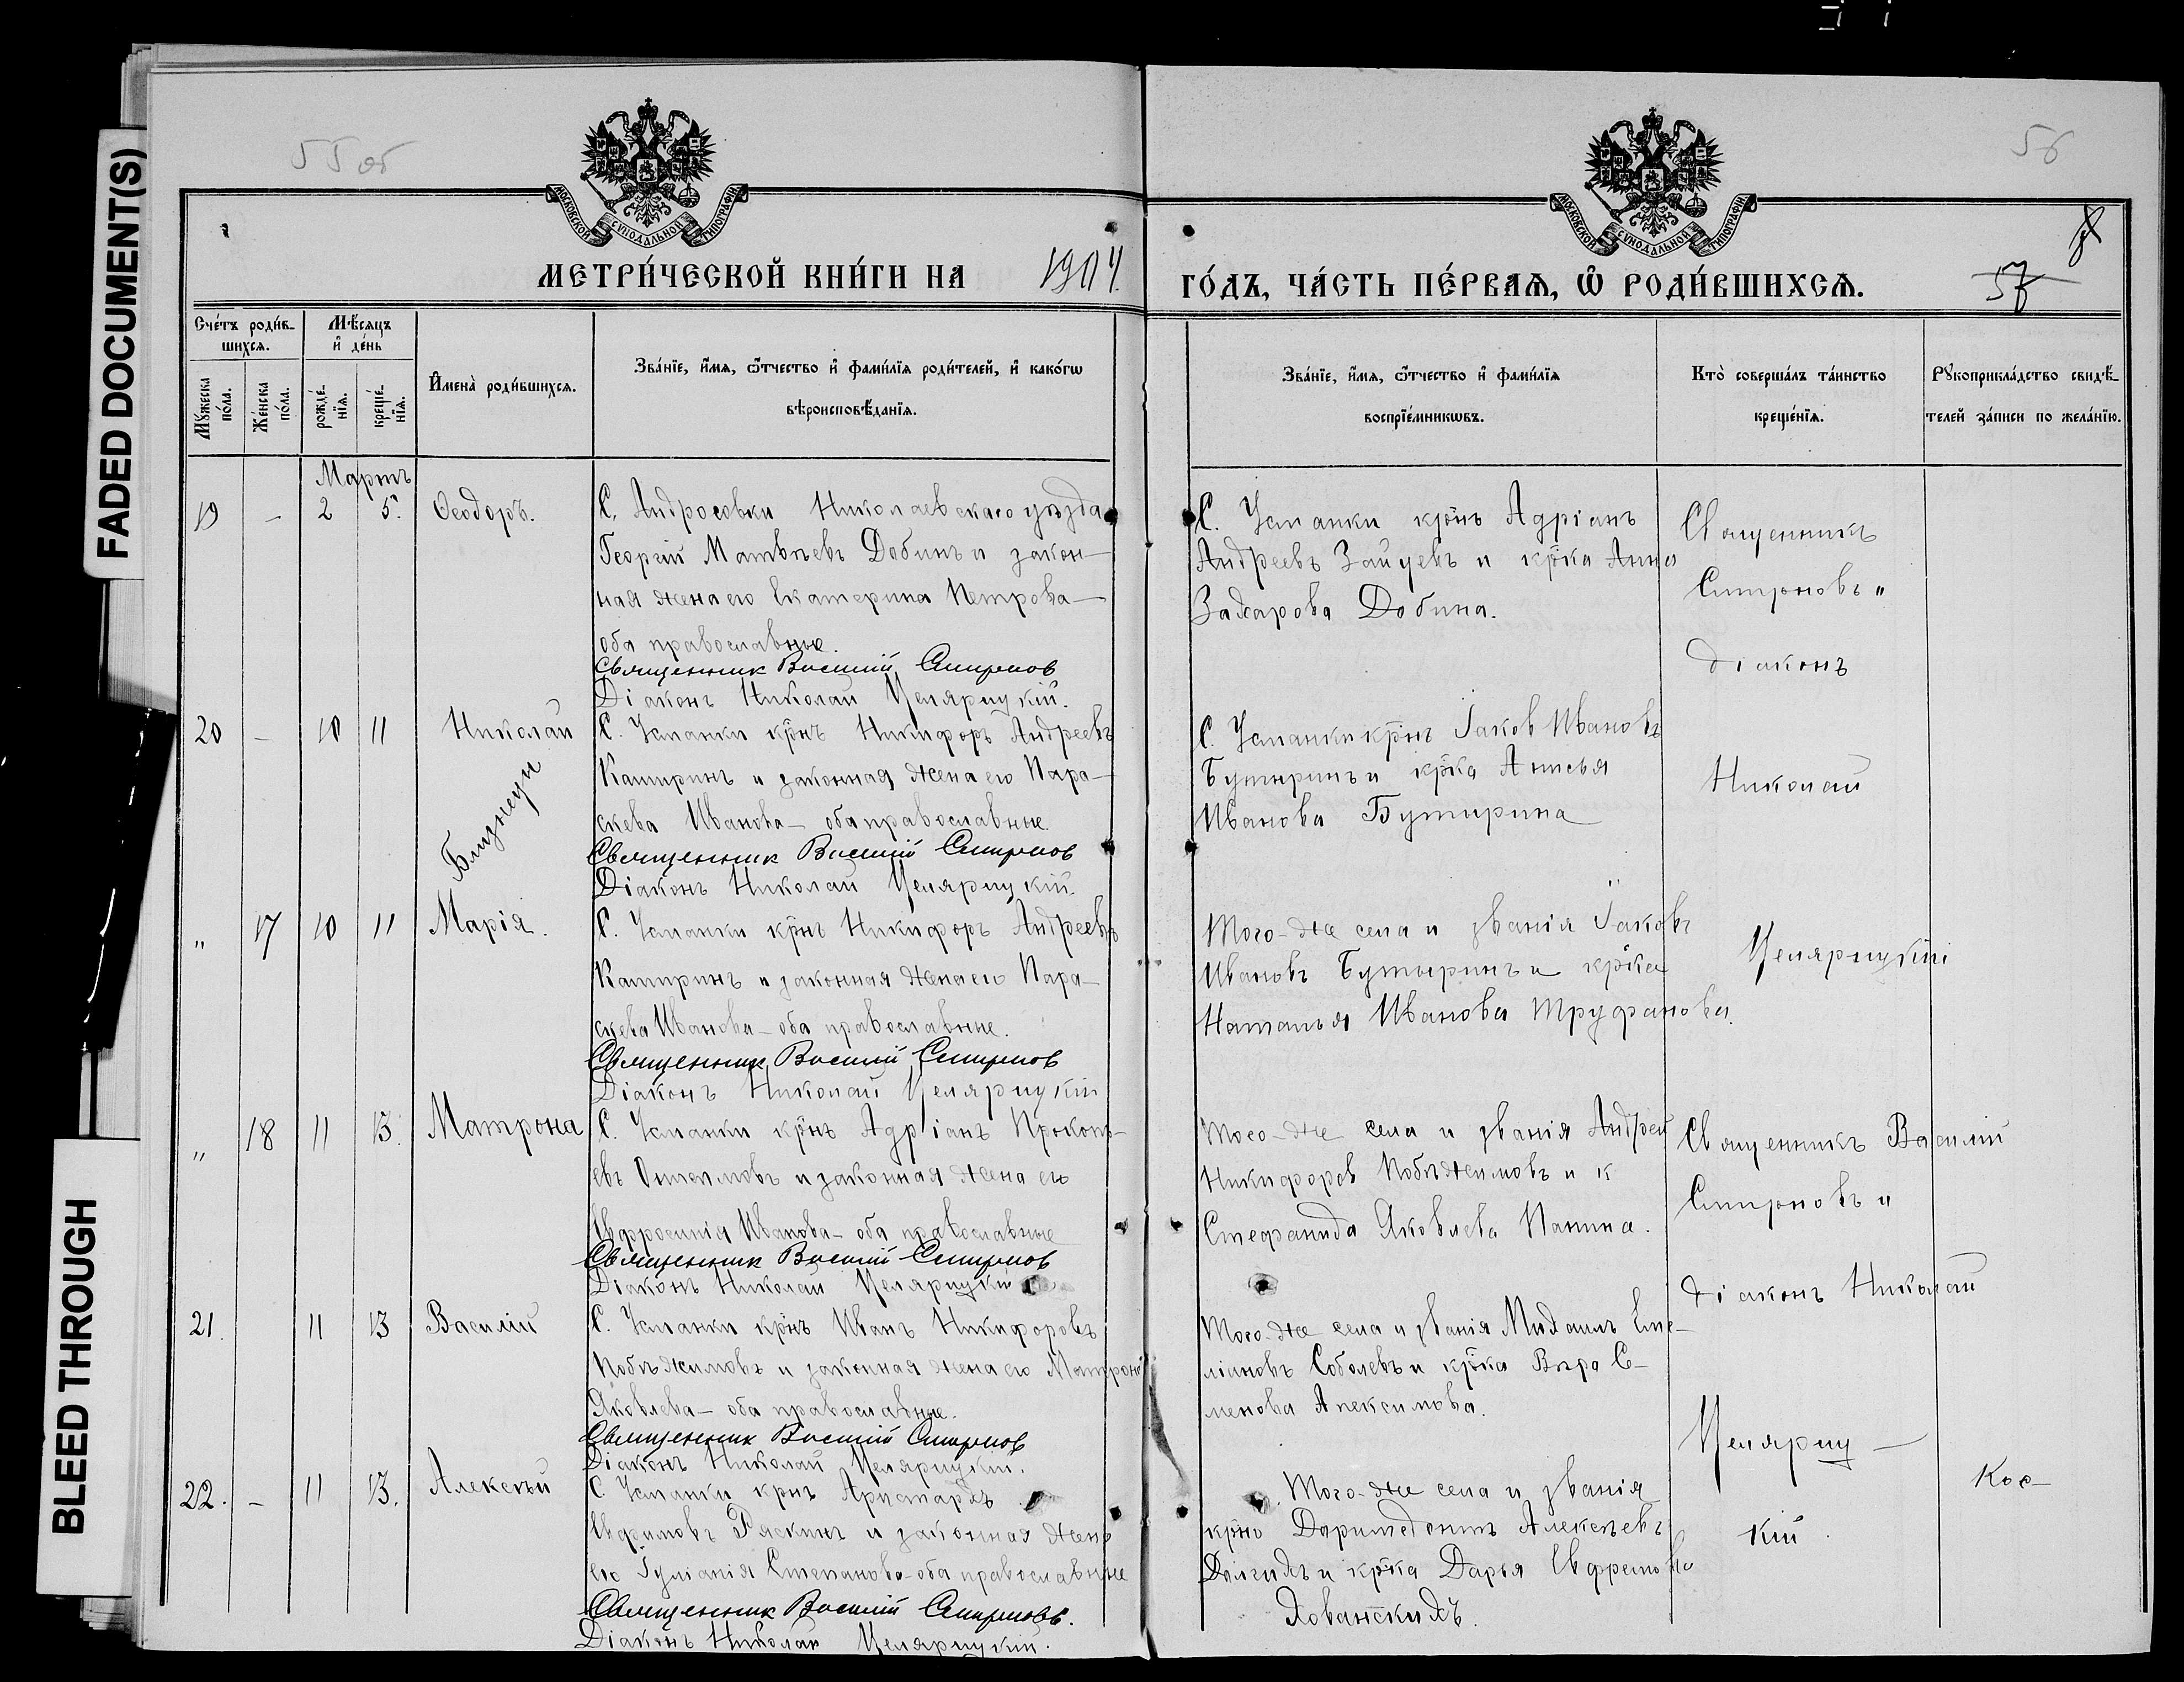 FADED DOCUMENT(S)
BLEED THROUGH
55 об
56
МОСКОВСКОЙ СѴНОДАЛЬНОЙ ТИПОГРАФІИ
МОСКОВСКОЙ СѴНОДАЛЬНОЙ ТИПОГРАФІИ
МЕТРИ́ЧЕСКОЙ КНИ́ГИ НА 1904.
ГО́ДЪ, ЧА́СТЬ ПЕ́РВАѦ, Ѿ РОДИ́ВШИХСѦ.
57
Сче́тъ роди́в-
шихсѧ.
Мꙋ́жеска по́ла.
Же́нска по́ла.
Мѣ́сѧцъ
и҆ де́нь
рожде́нїѧ.
креще́нїѧ.
И҆мена̀ роди́вшихсѧ.
Зва́нїе, и҆́мѧ, ѻ҆́тчество и҆ фами́лїѧ роди́телей, и҆ како́гѡ
вѣроисповѣ́данїѧ.
Зва́нїе, и҆́мѧ, ѻ҆́тчество и҆ фами́лїѧ
воспрїе́мникѡвъ.
Кто̀ соверша́лъ та́инство
креще́нїѧ.
Рꙋкоприкла́дство свидѣ́-
телей за́писи по жела́нїю.
Мартъ
19 - 2 5. Ѳеодоръ.
С. Андросовки Николаевскаго уѣзда
Георгій Матвѣевъ Добинъ и закон-
ная жена его Екатерина Петрова-
оба православные.
Священник Василій Смирнов
Діаконъ Николай Целярицкій.
С. Усманки кр̃нъ Адріанъ
Андреевъ Зайцевъ и кр̃ка Анна
Захарова Добина.
Священникъ
Смирновъ и
діаконъ
Николай
Целярицкій
20 - 10 11 Николай
Близнецы
С. Усманки кр̃нъ Никифоръ Андреевъ
Каширинъ и законная жена его Пара-
скева Иванова - оба православные.
Священник Василій Смирнов
Діаконъ Николай Целярицкій.
С. Усманки кр̃нъ Іаков Ивановъ
Бутыринъ и кр̃ка Анисья
Иванова Бутырина
" 17 10 11 Марія.
С. Усманки кр̃нъ Никифоръ Андреевъ
Каширинъ и законная жена его Пара-
скева Иванова - оба православные.
Священник Василій Смирнов
Діаконъ Николай Целярицкій
Того-же села и званія Іаковъ
Ивановъ Бутыринъ и кр̃ка
Наталья Иванова Труфанова.
" 18 11 13. Матрона
С. Усманки кр̃нъ Адріанъ Прокопь-
евъ и законная жена его
Евфросинія Иванова - оба православные
Священник Василій Смирнов
Діаконъ Николай Целярицкій
Того-же села и званія Андрей
Никифоров Побѣжимовъ и к
Стефанида Яковлева Панина.
Священникъ Василій
Смирновъ и
діаконъ Николай
Целяриц-
кій.
21. 11 13 Василій
С. Усманки кр̃нъ Иванъ Никифоровъ
Побѣжимовъ и законная жена его Матрона
Яковлева - оба православные.
Священник Василій Смирнов
Діаконъ Николай Целярицкій.
Того-же села и званія Михаилъ Еме-
ліановъ Соболевъ и кр̃ка Вѣра Се-
менова Алексимова.
22. - 11 13. Алексѣй
С. Усманки кр̃нъ Аристархъ
Евфимовъ Раскинъ и законная жена
его Іуліанія Степанова - оба православные
Священник Василій Смирновъ.
Діаконъ Николай Целярицкій.
Того-же села и званія
кр̃нъ Доримедонтъ Алексѣевъ
Долгихъ и кр̃ка Дарья Евфремова
Хованскихъ.
Кос-